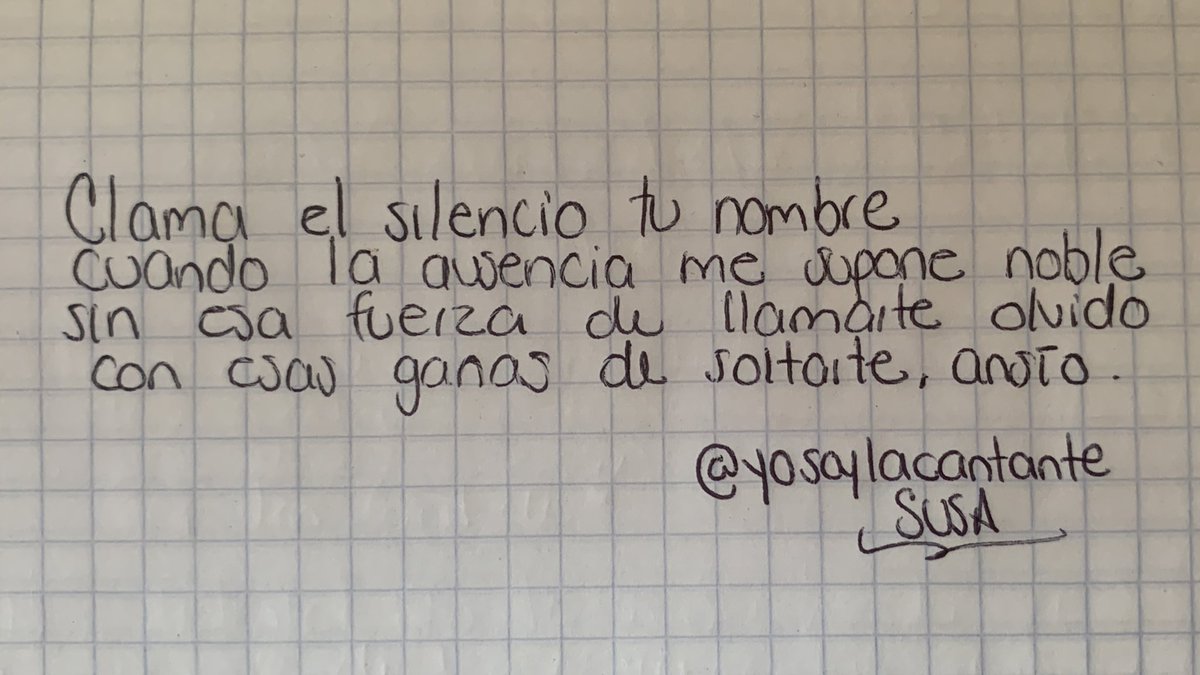 Clama el silencio tu nombre
cuando la ausencia me supone noble
sin esa fuerza de llamarte olvido
con esas ganas de soltarte, ansío.
@yosoylacantante
SUSA